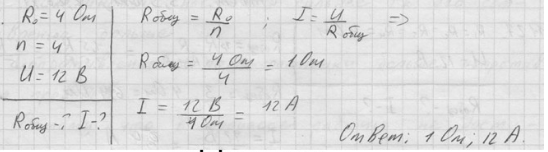 R₀ = 4 Ом
n = 4
U = 12 В
Rобщ -? I -?
Rобщ = R₀/n ; I = U/Rобщ =>
Rобщ = 4 Ом/4 = 1 Ом
I = 12 В/4 Ом = 12 А
Ответ: 1 Ом; 12 А.